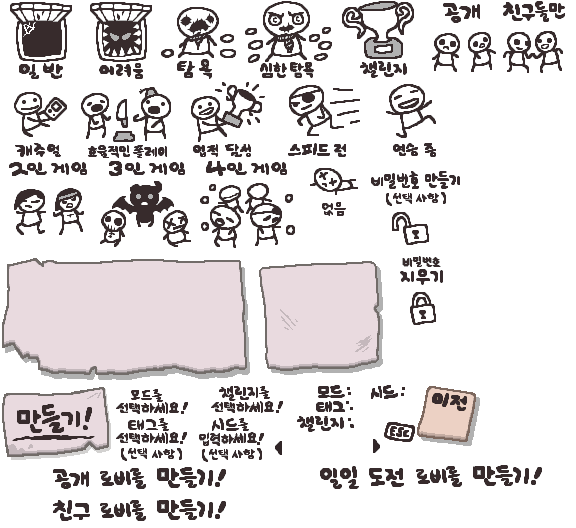 공개 친구들만
일반 어려움 탐욕 심한 탐욕 챌린지
캐주얼 효율적인 플레이 업적 달성 스피드 런 연승 중
2인 게임 3인 게임 4인 게임
없음
비밀번호 만들기
(선택 사항)
비밀번호
지우기
만들기!
모드를
선택하세요!
태그를
선택하세요!
(선택 사항)
챌린지를
선택하세요!
시드를
입력하세요!
(선택 사항)
모드: 시드:
태그:
챌린지:
이전
ESC
공개 로비를 만들기!
일일 도전 로비를 만들기!
친구 로비를 만들기!